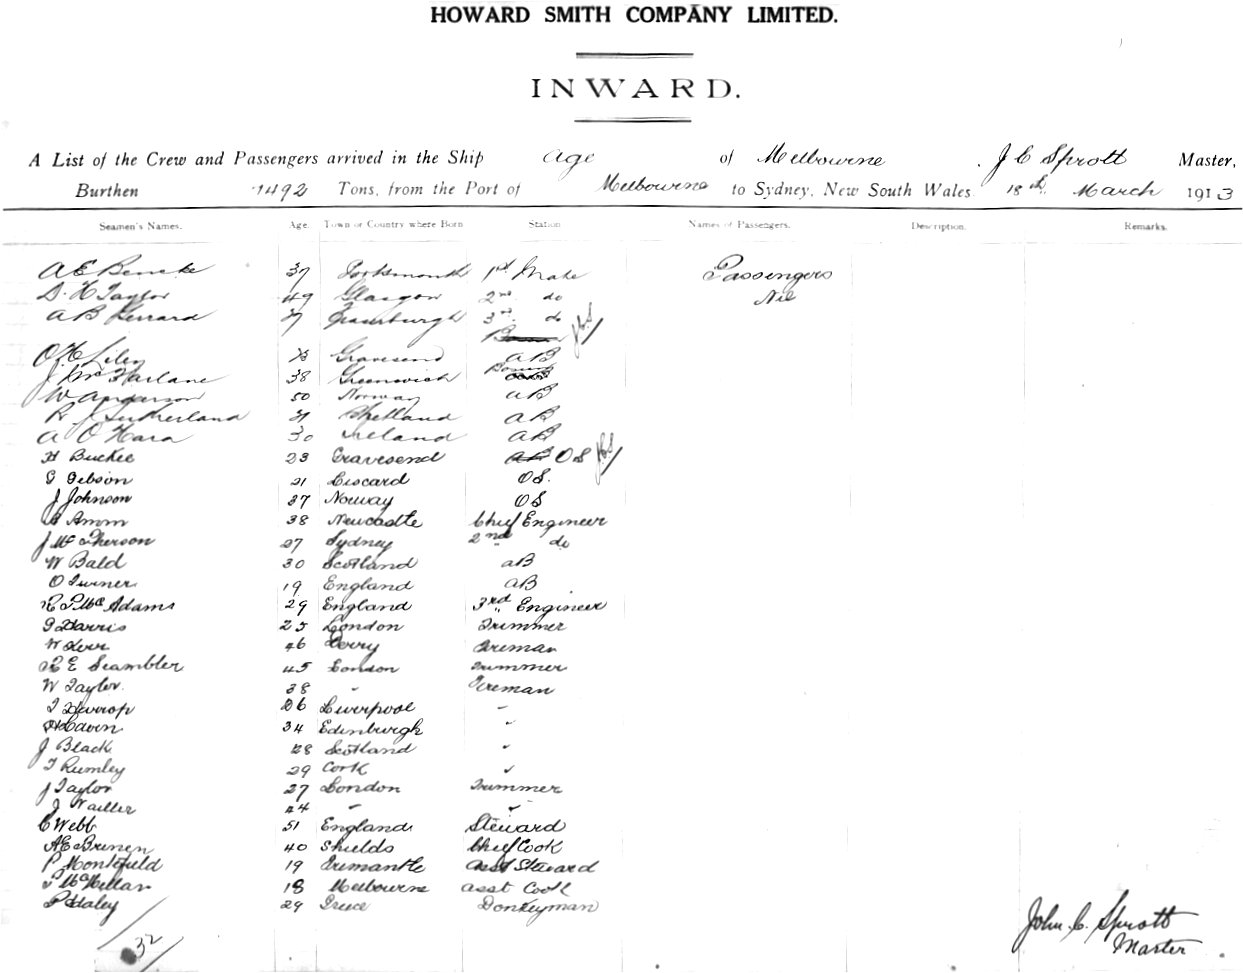 HOWARD SMITH COMPANY LIMITED.
INWARD.
A List of the Crew and Passengers arrived in the Ship Age of Melbourne . J C Sprott Master,
Burthen 1492 Tons, from the Port of Melbourne to Sydney, New South Wales 18th March 1913
Seamen's Names. Age. Town or Country where Born Station Names of Passengers. Description. Remarks.
A E Bencke 37 Portsmouth 1st Mate Passengers
D. H Taylor 49 Glasgow 2nd do Nil
A B Kerrard 3rd do
O. H. Liley Gravesend AB
J McFarlane 38 Greenwich
W Anderson 50 Norway AB
R J Sutherland Shetland AB
A O'Hara 30 Ireland AB
H Buckee 23 Gravesend AB OS
G Gibson 21 Liscard OS.
J Johnson 37 Norway OS
Amm 38 Newcastle Chief Engineer
J McPherson 27 Sydney 2nd do
W Bald 30 Scotland AB
O Turner 19 England AB
McAdams 29 England 3rd Engineer
G Harris 25 London Trimmer
W Kerr 46 Derry Fireman
E Scambler 45 London Trimmer
W Taylor. 38 " Fireman
T Harrop 26 Liverpool "
Lavin 34 Edinburgh "
J Black 28 Scotland "
T Rumley 29 Cork "
J Taylor 27 London Trimmer
J Wailler 44 " "
C Webb 51 England Steward
AE Brinen 40 Shields Chief Cook
P Montefield 19 Fremantle Asst Steward
McMillan 18 Melbourne asst Cook
P Haley 29 Greece Donkeyman
32
John C. Sprott
Master